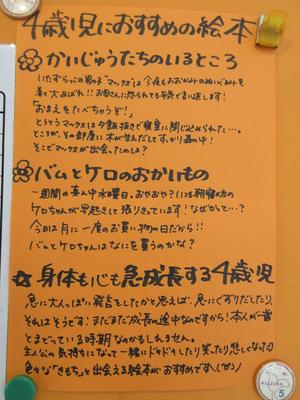 4歳児におすすめの絵本
かいじゅうたちのいるところ
いたずらっこの男の子“マックス”は今夜もおおかみのぬいぐるみを
着て大あばれ!!お母さんに怒られても平気で言い返します!
「おまえをたべちゃうぞ!」
とうとうマックスは夕飯抜きで寝室に閉じ込められた…。
ところが、その部屋に木が生えだしてすっかり森の中!
そこでマックスが出会ったのは?
バムとケロのおかいもの
一週間の真ん中水曜日。おやおや?いつも朝寝坊の
ケロちゃんが早起きして張りきっています!なぜかって…?
今日は月に一度のお買い物の日だから!!
バムとケロちゃんはなにを買うのかな?
☆身体も心も急成長する4歳児
急に大人っぽい発言をしたかと思えば、急にぐずりだしたり。
それはそうです!まだまだ成長の途中なのですから!本人が一番
とまどっている時期なのかもしれません。
主人公の気持ちになって一緒にドキドキしたり笑ったり悲しくなったり
色々な“きもち”と出会える絵本がおすすめです
KUJIRA
5